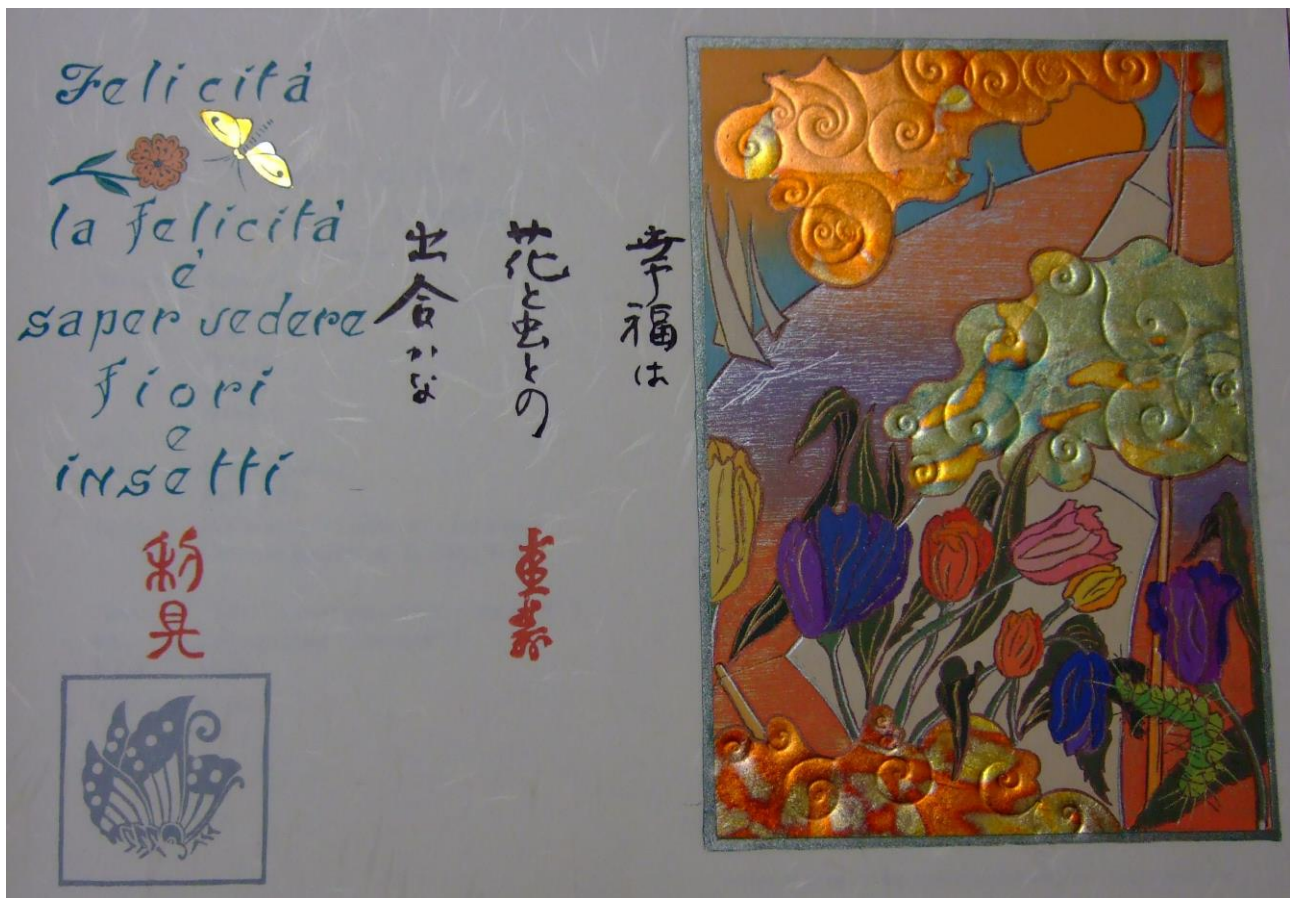 Felicità
la felicità
è
saper vedere
fiori
e
insetti
幸福は
花と虫との
出合かな